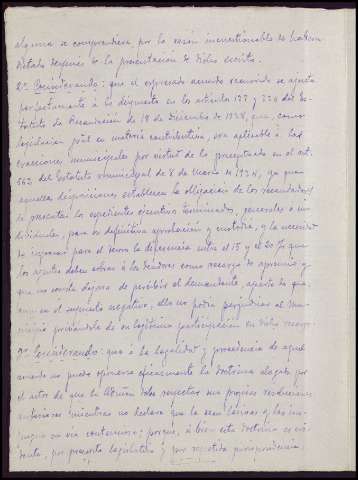 alguna se comprendiera por la razón incuestionable de haberse
dictado después de la presentación de dicho escrito.
2º Considerando: que el expresado acuerdo recurrido se ajusta
perfectamente a lo dispuesto en los artículos 127 y 220 del Es-
tatuto de Recaudación de 18 de Diciembre de 1928, que, como
legislación gral en materia contributiva, son aplicable a las
exacciones municipales por virtud de lo preceptuado en el art.
562 del Estatuto Municipal de 8 de Marzo de 1924, ya que
aquellas disposiciones establecen la obligación de los recaudadores
de presentar los expedientes ejecutivos terminados, generales o in-
dividuales, para su definitiva aprobación y custodia, y la necesidad
de ingresar para el Tesoro la diferencia entre el 15 y el 20 % que
los agentes deben cobrar a los deudores como recargo de apremio y
que no consta dejara de percibir el demandante, aparte de que
aun en el supuesto negativo, ello no podría perjudicar al Mu-
nicipio privándole de su legítima participación en dicho recargo.
3º Considerando: que a la legalidad y procedencia de aquel
acuerdo no puede oponerse eficazmente la doctrina alegada por
el actor de que la Admón debe respetar sus propias resoluciones
anteriores mientras no declare que le sean lesivas y las im-
pugne en vía contenciosa; porque, si bien esta doctrina es evi-
dente, por precepto legislativo y por repetida jurisprudencia,